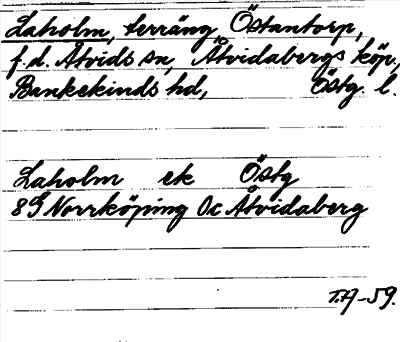 Laholm, terräng, Östantorp,
f.d. Åtvids sn, Åtvidabergs köp.,
Bankekinds hd, Östg. l.
Laholm ek Östg
8G Norrköping 0c Åtvidaberg
T.A-59.